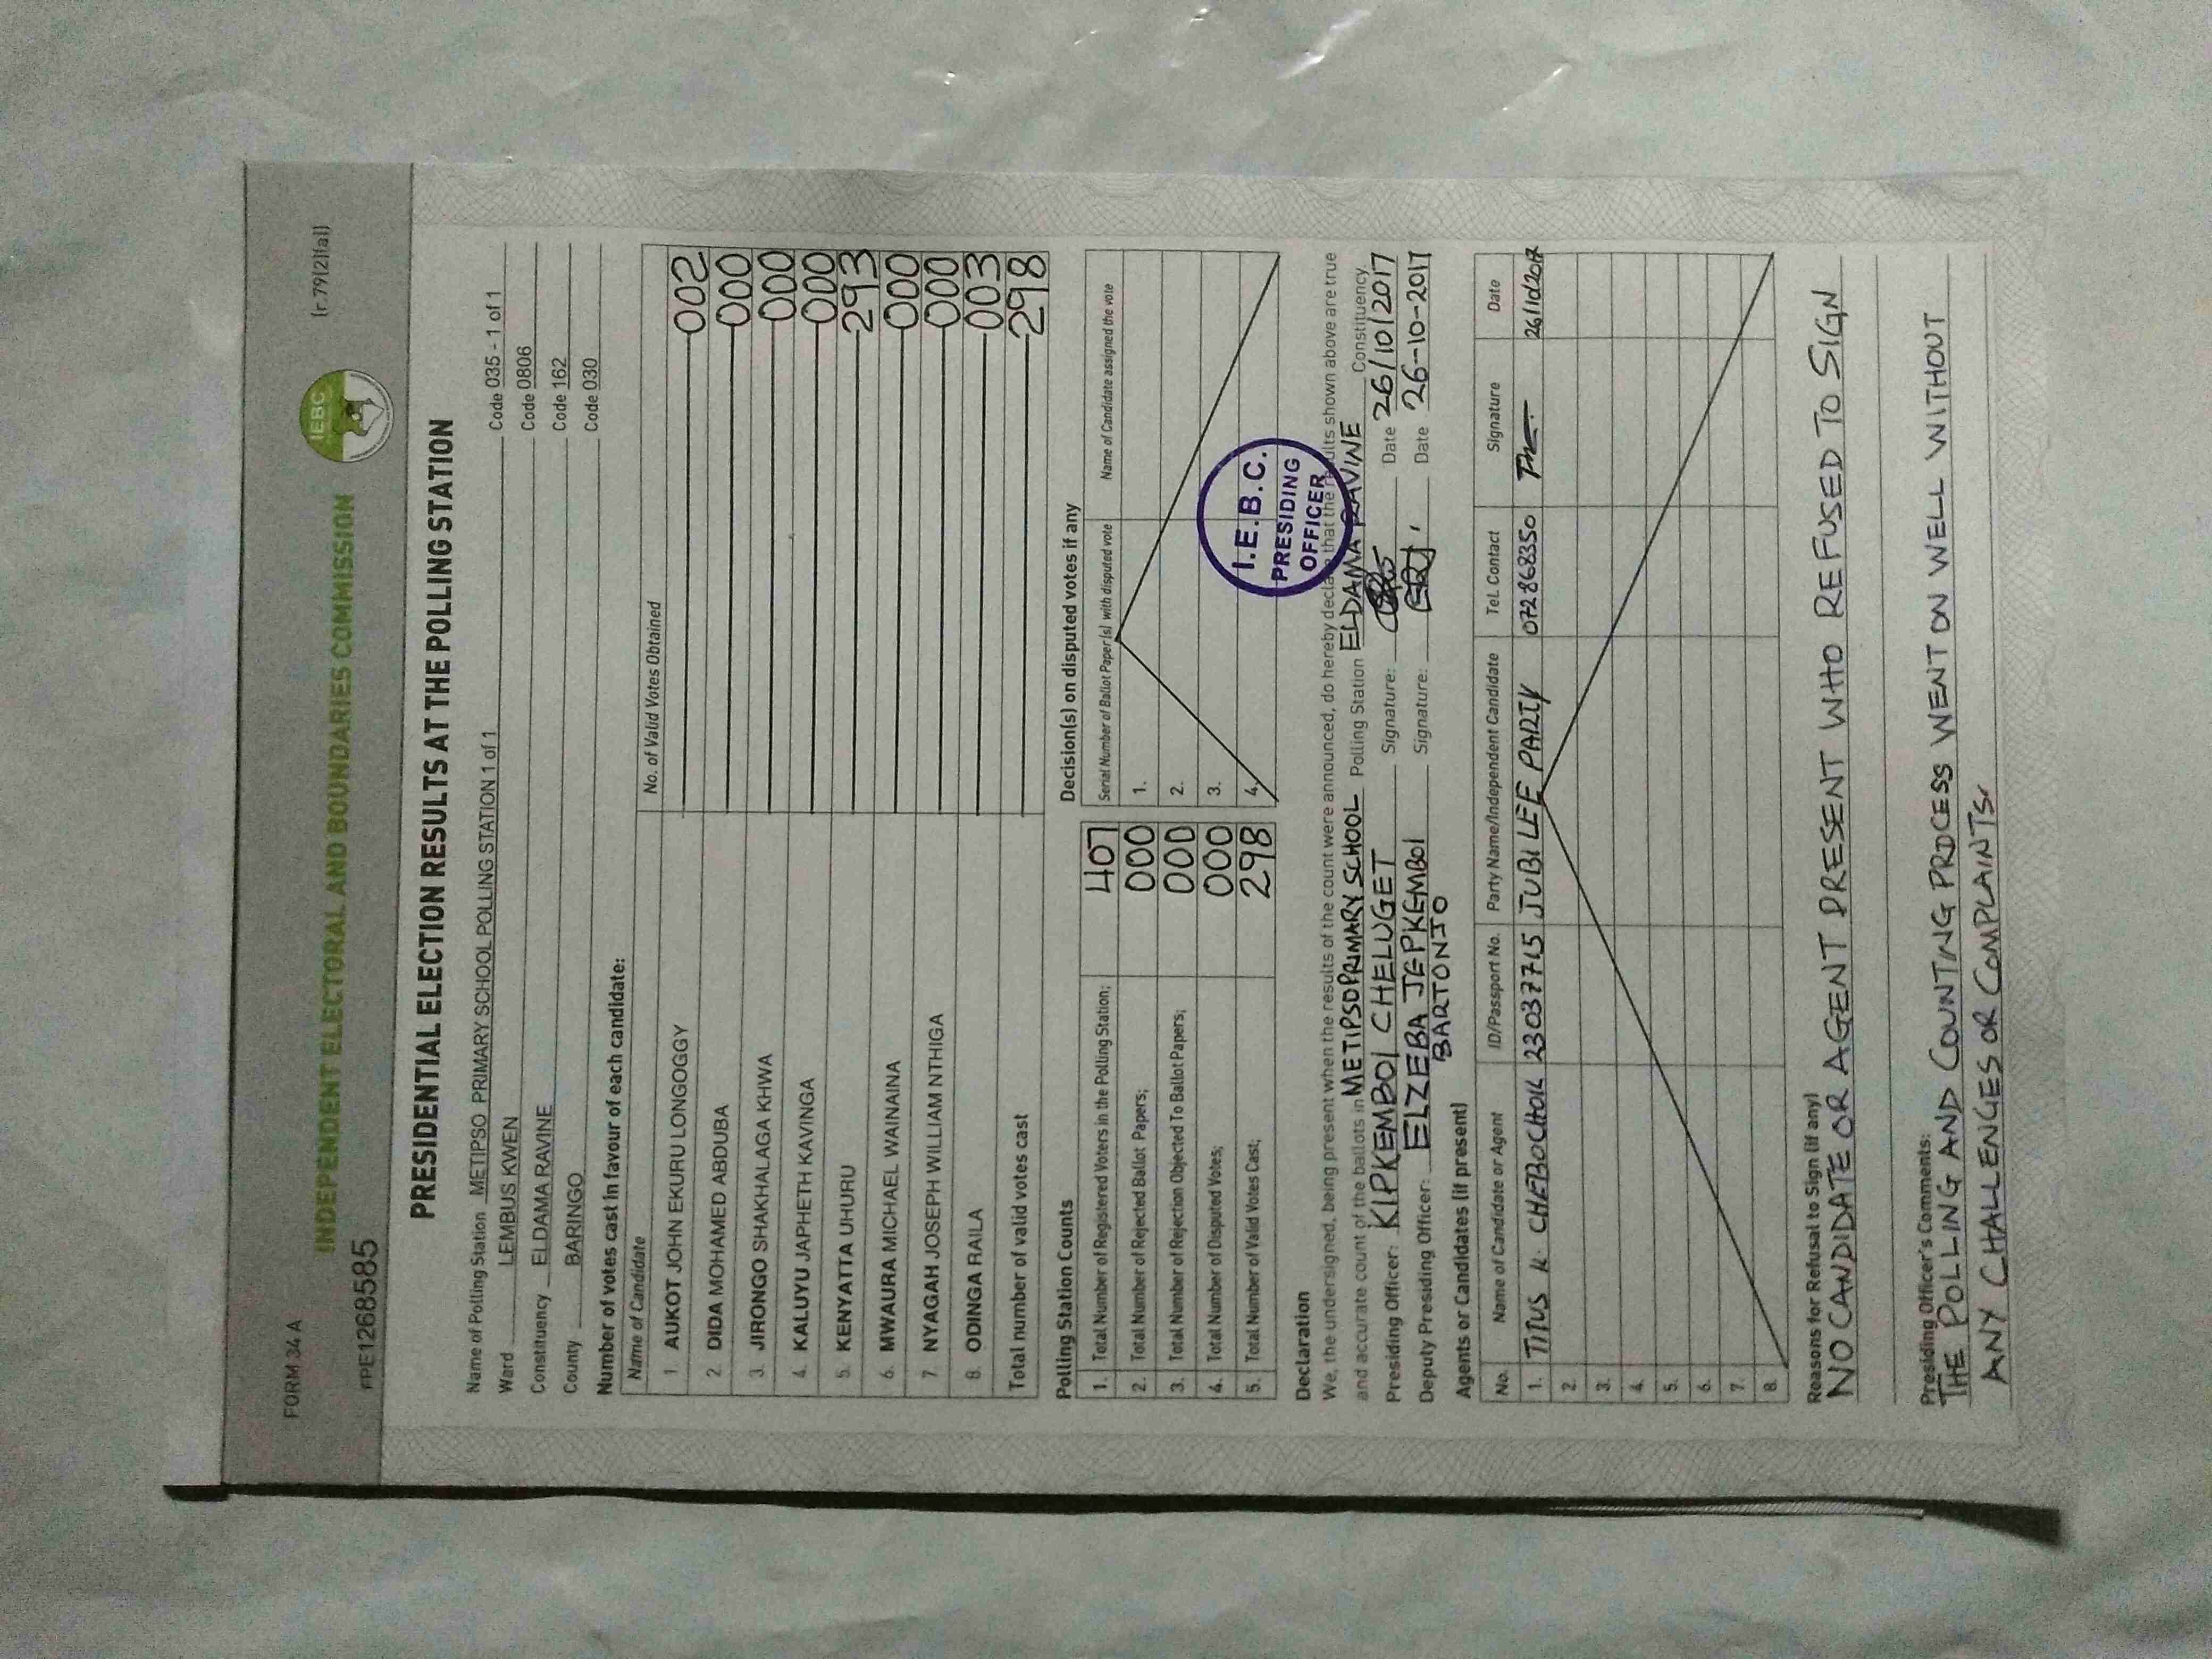 FORM 34 A
(r.79(2)(a))
INDEPENDENT ELECTORAL AND BOUNDARIES COMMISSION
IEBC
FPE1268585
PRESIDENTIAL ELECTION RESULTS AT THE POLLING STATION
Name of Polling Station METIPSO PRIMARY SCHOOL POLLING STATION 1 of 1 Code 035 - 1 of 1
Ward LEMBUS KWEN Code 0806
Constituency ELDAMA RAVINE Code 162
County BARINGO Code 030
Number of votes cast in favour of each candidate:
Name of Candidate No. of Valid Votes Obtained
1 AUKOT JOHN EKURU LONGOGGY 002
2 DIDA MOHAMED ABDUBA 000
3. JIRONGO SHAKHALAGA KHWA 000
4. KALUYU JAPHETH KAVINGA 000
5. KENYATTA UHURU 293
6. MWAURA MICHAEL WAINAINA 000
7. NYAGAH JOSEPH WILLIAM NTHIGA 000
8. ODINGA RAILA 003
Total number of valid votes cast 298
Polling Station Counts
1. Total Number of Registered Voters in the Polling Station; 407
2. Total Number of Rejected Ballot Papers; 000
3. Total Number of Rejection Objected To Ballot Papers; 000
4. Total Number of Disputed Votes; 000
5. Total Number of Valid Votes Cast; 298
Decision(s) on disputed votes if any
Serial Number of Ballot Paper(s) with disputed vote Name of Candidate assigned the vote
1.
2.
3.
4.
I.E.B.C.
PRESIDING
OFFICER
Declaration
We, the undersigned, being present when the results of the count were announced, do hereby declare that the results shown above are true
and accurate count of the ballots in METIPSO PRIMARY SCHOOL Polling Station ELDAMA RAVINE Constituency.
Presiding Officer: KIPKEMBOI CHELUGET Signature: Date 26/10/2017
Deputy Presiding Officer: ELZEBA JEPKEMBOI Signature: Date 26-10-2017
BARTONJO
Agents or Candidates (if present)
No. Name of Candidate or Agent ID/Passport No. Party Name/Independent Candidate Tel. Contact Signature Date
1. TITUS K. CHEBOCHOK 23037715 JUBILEE PARTY 0728668350 26/10/2017
2.
3.
4.
5.
6.
7.
8.
Reasons for Refusal to Sign (if any)
NO CANDIDATE OR AGENT PRESENT WHO REFUSED TO SIGN
Presiding Officer's Comments:
THE POLLING AND COUNTING PROCESS WENT ON WELL WITHOUT
ANY CHALLENGES OR COMPLAINTS.